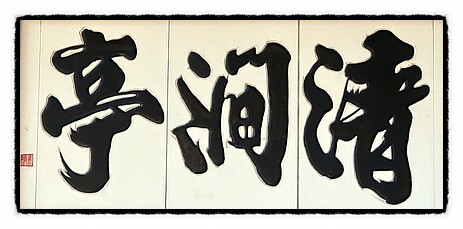 清澗亭